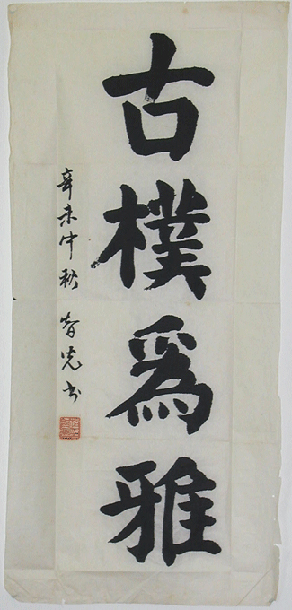 古樸為雅
辛未中秋 智光書